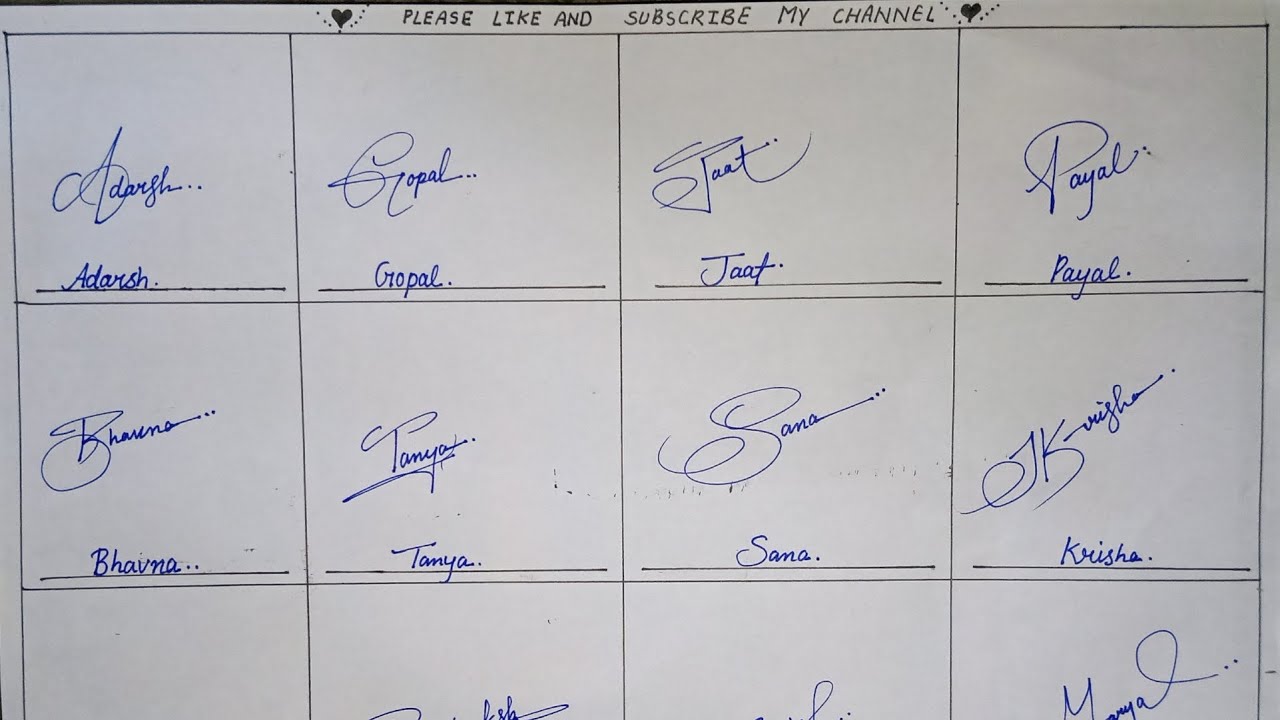 PLEASE LIKE AND SUBSCRIBE MY CHANNEL
Adarsh.. Gopal.. Jaat.. Payal..
Adarsh. Gopal. Jaat. Payal.
Bhavna.. Tanya.. Sana.. Krisha..
Bhavna.. Tanya. Sana. Krisha.